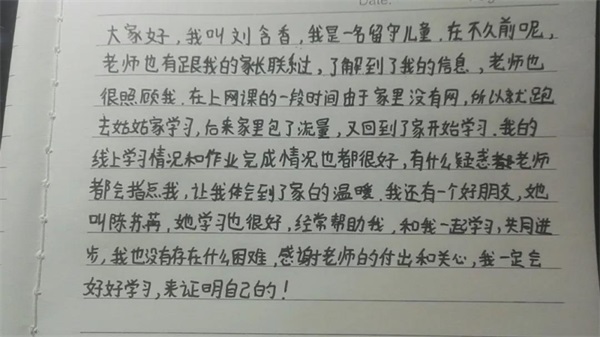 Date:
大家好,我叫刘含香,我是一名留守儿童,在不久前呢,
老师也有跟我的家长联系过,了解到了我的信息,老师也
很照顾我.在上网课的一段时间由于家里没有网,所以就跑
去姑姑家学习,后来家里包了流量,又回到了家开始学习.我的
线上学习情况和作业完成情况也都很好,有什么疑惑老师
都会指点我,让我体会到了家的温暖.我还有一个好朋友,她
叫陈苏苒,她学习也很好,经常帮助我,和我一起学习,共同进
步,我也没有存在什么困难.感谢老师的付出和关心,我一定会
好好学习,来证明自己的!